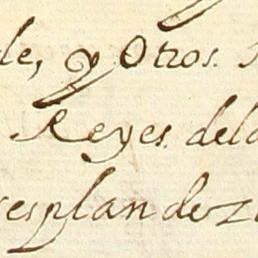 le, y Otros.
Reyes. dela
resplandez